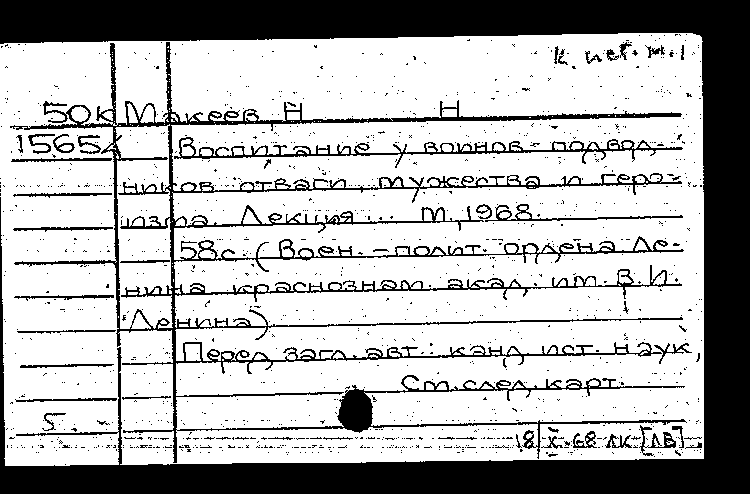 К. ист. м. 1
50к Макеев, Н Н
15654 Воспитание у воинов-подвод-
ников отваги, мужества и геро-
изма. Лекция... М., 1968.
58с. (Воен.-полит. ордена Ле-
нина краснознам. акад. им. В.И.
Ленина)
Перед загл. авт.: канд. ист. наук,
См. след. карт.
5. -
18 X.68 ЛК [ЛВ]